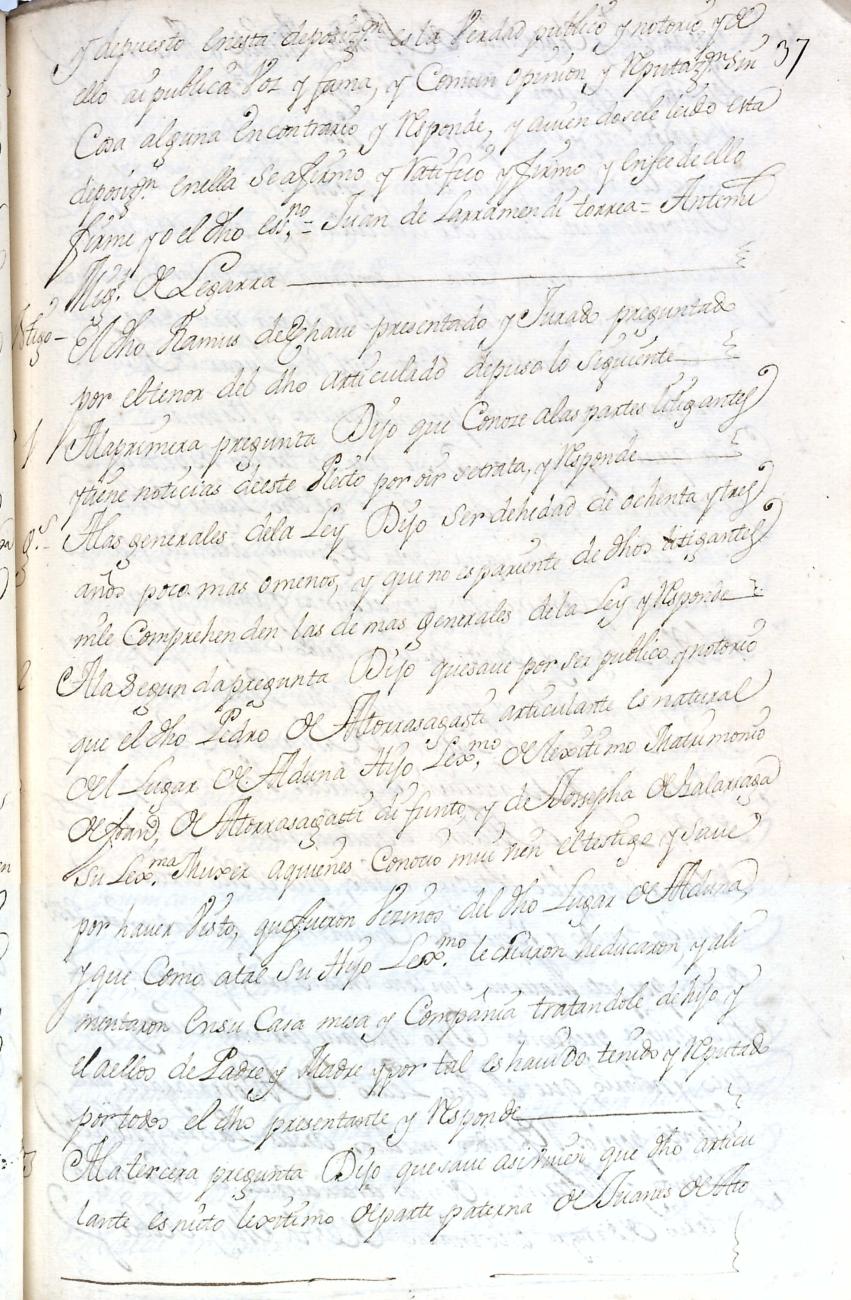 37
y depuesto en esta deposiz.on es la Verdad publico y notorio y de
ello ai publica Voz y fama, y Comun opinion y Reputaz.on sin
Cosa alguna en contrario y Responde, y aviendosele leido esta
deposiz.on en ella se afirmo y Ratifico y firmo y en fee de ello
firme yo el dho ess.no = Juan de Larramendi torrea = Antoni
Mig.l de Legarra
testigo
El dho Ramus de Echave presentado y Jurado preguntado
por el tenor del dho articulado depuso lo siguiente
1 Ala primera pregunta Dijo que Conoze alas partes litigantes
y tiene noticias de este Pleito por oir se trata, y Responde
g.s Alas generales dela Ley Dijo ser de hedad de ochenta y tres
años poco mas o menos, y que no es pariente de dhos litigantes
ni le Comprehenden las demas generales dela Ley y Responde
2 Ala Segunda pregunta Dijo que save por ser publico y notorio
que el dho Pedro de Atorrasagasti articulante es natural
del Lugar de Alduna Hijo Lex.mo de lexitimo Matrimonio
de Juan de Atorrasagasti difunto, y de Josepha de Zalariaga
su Lex.ma Muxer aquienes Conocio mui vien el testigo y save
por haver Visto, que fueron Vezinos del dho Lugar de Alduna,
y que Como atal su Hijo Lex.mo le criaron heducaron, y ali
mentaron en su Casa mesa y Compañia tratandole de hijo y
el a ellos de Padre y Madre y por tal es havido tenido y Reputado
por todos el dho presentante y Responde
3 Ala tercera pregunta Dijo que save asi vien que dho articu
lante es nieto lexitimo de parte paterna de Juanes de Ato